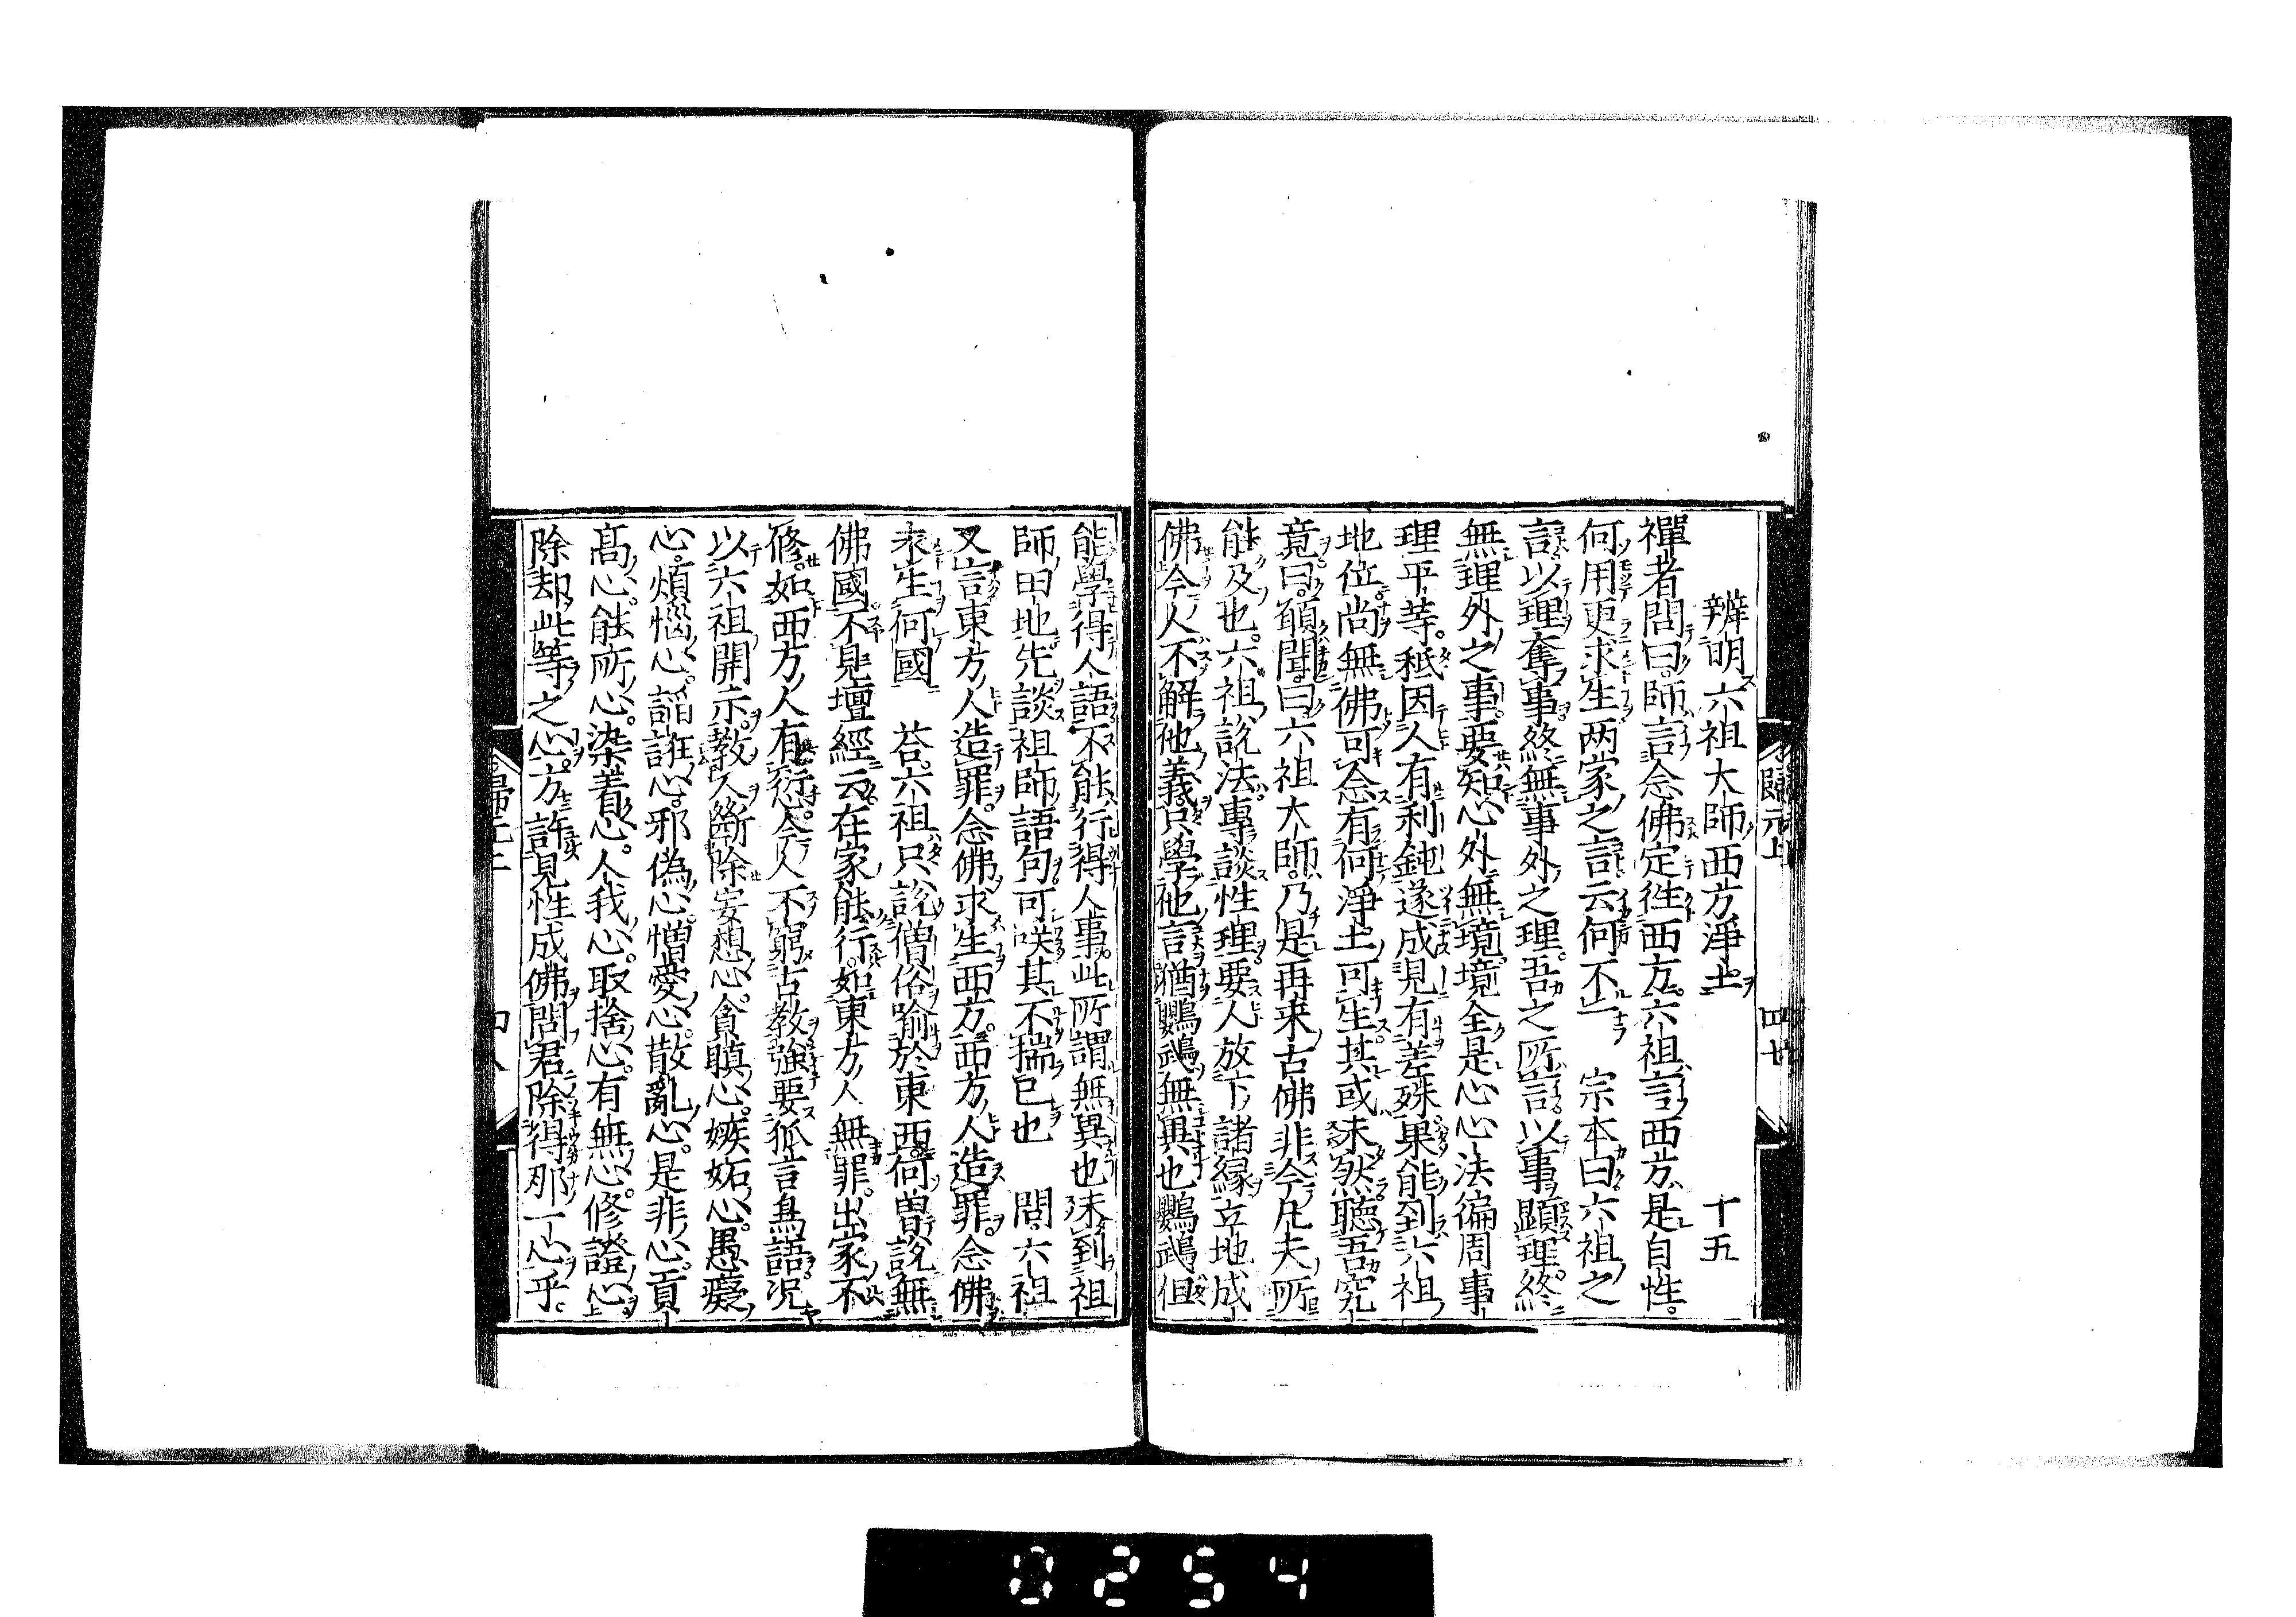 辨明六祖大師西方淨土 十五
禪者問曰師言念佛定徃西方六祖言西方是自性
何用更求生两家之言云何不一 宗本曰六祖之
言以理奪事終無事外之理吾之所言以事顯理終
無理外之事要知心外無境境全是心心法徧周事
理平等秪因人有利鈍遂成見有差殊果能到六祖
地位尚無佛可念有何淨土可生其或未然聽吾究
竟曰願聞曰六祖大師乃是再来古佛非今凡夫所
能及也六祖說法專談性理要人放下諸緣立地成
佛今人不解他義只學他言猶鸚鵡無異也鸚鵡但
能學得人語不能行得人事此所謂無異也未到祖
師田地先談祖師語句可咲其不揣已也 問六祖
又言東方人造罪念佛求生西方西方人造罪念佛
求生何國 荅六祖只說僧俗喻於東西何曽說無
佛國不見壇經云在家能行如東方人無罪出家不
修如西方人有愆今人不窮古教強要狐言為語况
以六祖開示教人斷除妄想心貪瞋心嫉妬心愚癡
心煩惱心諂誑心邪偽心憎愛心散亂心是非心貢
高心能所心染着心人我心取捨心有無心修證心
除却此等之心方許見性成佛問君除得那一心乎
歸元上
四十
0254